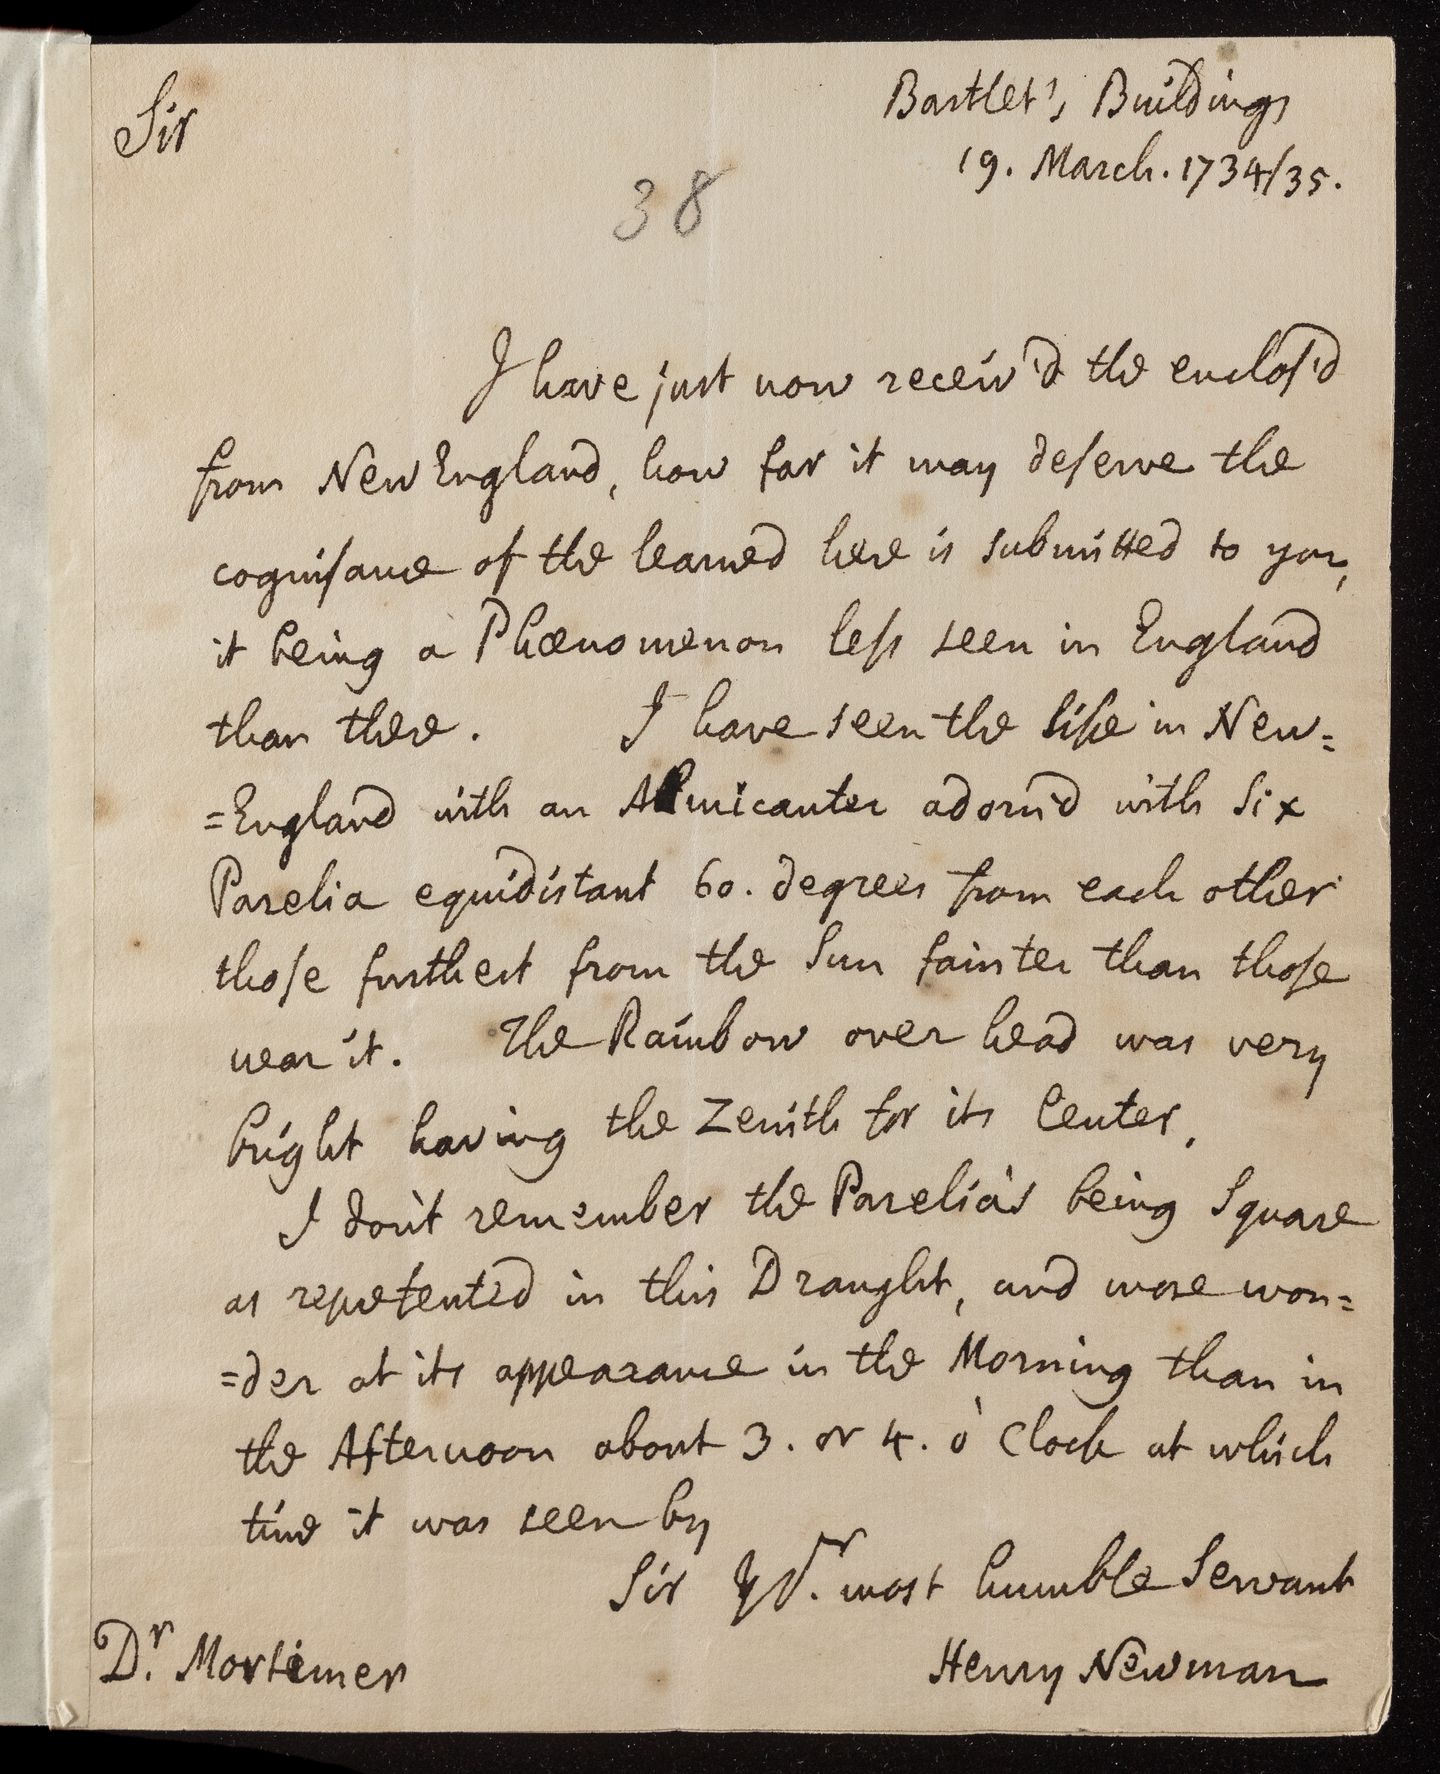 Sir
Bartlet's Buildings
19. March. 1734/35.
38
I have just now receiv'd the enclos'd
from New England, how far it may deserve the
cognisance of the learned here is submitted to you,
it being a Phænomenon less seen in England
than there. I have seen the like in New=
=England with an Almicanter adorn'd with Six
Parelia equidistant 60. degrees from each other
those furthest from the Sun fainter than those
near it. The Rainbow over head was very
bright having the Zenith for its Center.
I don't remember the Parelia's being Square
as represented in this Draught, and more won=
=der at its appearance in the Morning than in
the Afternoon about 3. or 4. o' Clock at which
time it was seen by
Sir Yor. most humble Servant
Dr. Mortimer
Henry Newman